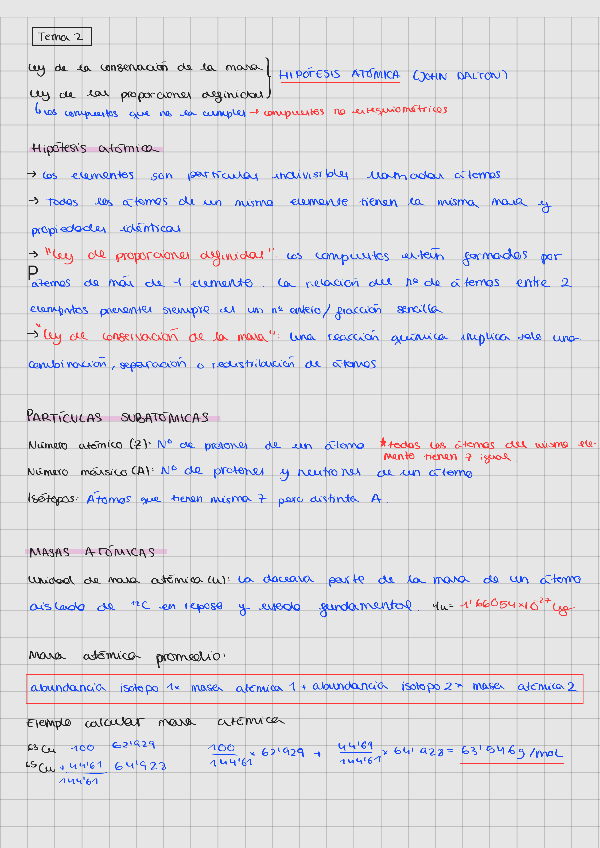 Tema 2
Ley de la conservación de la masa
Ley de las proporciones definidas
HIPÓTESIS ATÓMICA (JOHN DALTON)
↳ Los compuestos que no la cumplen → compuestos no estequiométricos
Hipótesis atómica
→ Los elementos son partículas indivisibles llamadas átomos
→ Todos los átomos de un mismo elemento tienen la misma masa y
propiedades idénticas
→ "Ley de proporciones definidas" Los compuestos están formados por
P
átomos de más de 1 elemento. La relación del nº de átomos entre 2
elementos presentes siempre es un nº entero/fracción sencilla
→ "Ley de conservación de la masa": Una reacción química implica solo una
combinación, separación o redistribución de átomos
PARTÍCULAS SUBATÓMICAS
Número atómico (Z): Nº de protones de un átomo *todos los átomos del mismo ele-
mento tienen Z igual
Número másico (A): Nº de protones y neutrones de un átomo
Isótopos: Átomos que tienen misma Z pero distinta A.
MASAS ATÓMICAS
Unidad de masa atómica (u): La doceava parte de la masa de un átomo
aislado de ¹²C en reposo y estado fundamental. 1u = 1'66054×10⁻²⁷ kg
Masa atómica promedio:
abundancia isotopo 1 × masa atómica 1 + abundancia isotopo 2 × masa atómica 2
Ejemplo calcular masa atómica
⁶³Cu 100 62'929 100/144'61 × 62'929 + 44'61/144'61 × 64'928 = 63'546 g/mol
⁶⁵Cu + 44'61 64'928
144'61